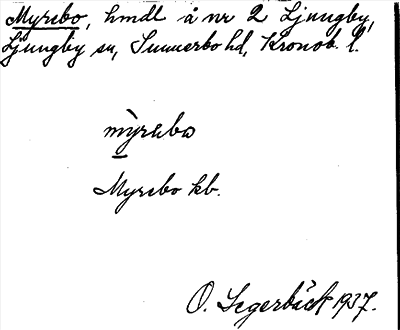 Myrebo, hmdl å nr 2 Ljungby,
Ljungby sn, Sunnerbo hd, Kronob. l.
mỳrebo
Myrebo kb.
O. Segerbäck 1937.